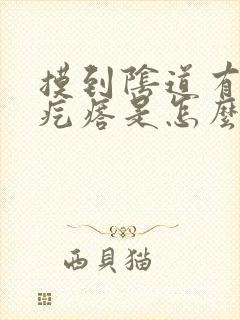 摸到陰道有
疙瘩是怎麼
西貝猫